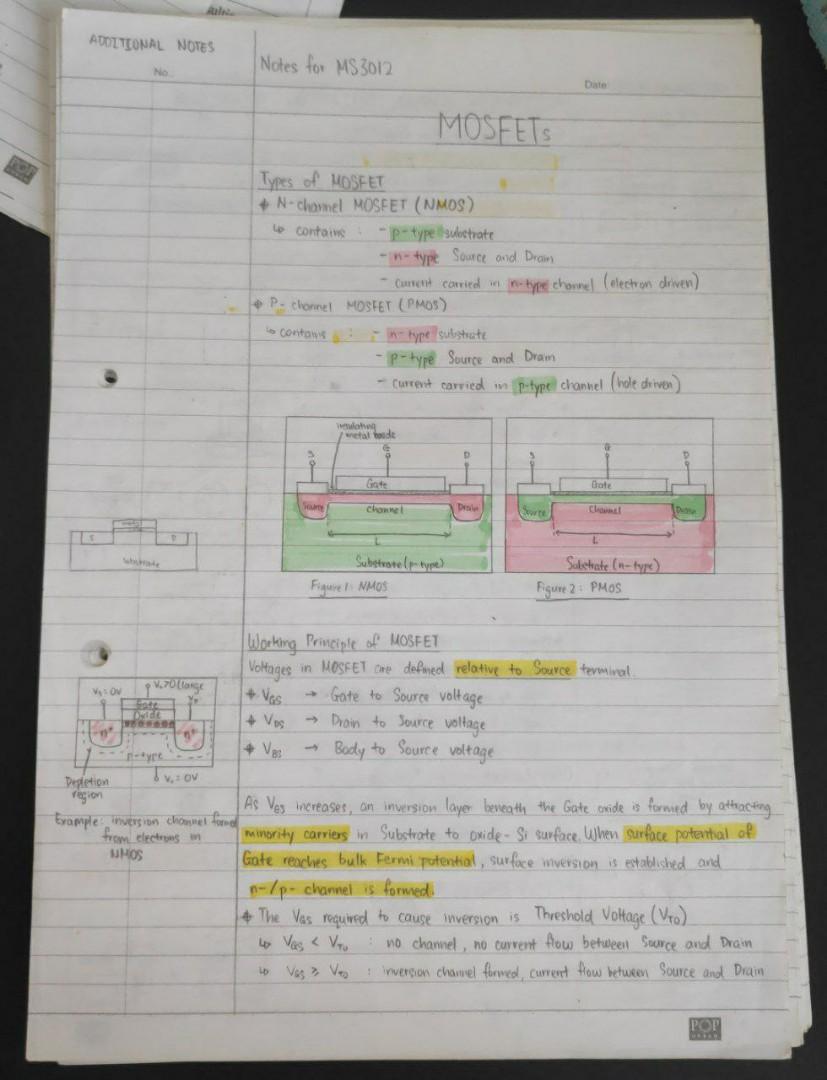 ADDITIONAL NOTES
No.
Notes for MS3012
Date:
MOSFETs
Types of MOSFET
N-channel MOSFET (NMOS)
↳ contains : - p-type substrate
- n-type Source and Drain
- current carried in n-type channel (electron driven)
P-channel MOSFET (PMOS)
↳ contains : - n-type substrate
- p-type Source and Drain
- current carried in p-type channel (hole driven)
insulating
metal
S G D
Gate
Source Channel Drain
L
Substrate (p-type)
Figure 1: NMOS
S G D
Gate
Source Channel Drain
L
Substrate (n-type)
Figure 2: PMOS
S D
substrate
Working Principle of MOSFET
Voltages in MOSFET are defined relative to Source terminal.
VGS → Gate to Source voltage
VDS → Drain to Source voltage
VBS → Body to Source voltage
= 0V >0 (large
Gate
Oxide
n+ n+
p-type
= 0V
Depletion
region
Example: inversion channel formed
from electrons in
NMOS
As VGS increases, an inversion layer beneath the Gate oxide is formed by attracting
minority carriers in Substrate to oxide-Si surface. When surface potential of
Gate reaches bulk Fermi potential, surface inversion is established and
n-/p- channel is formed.
The VGS required to cause inversion is Threshold Voltage (VTO)
↳ VGS < VTO : no channel, no current flow between Source and Drain
↳ VGS ≥ VTO : inversion channel formed, current flow between Source and Drain
POP
POP